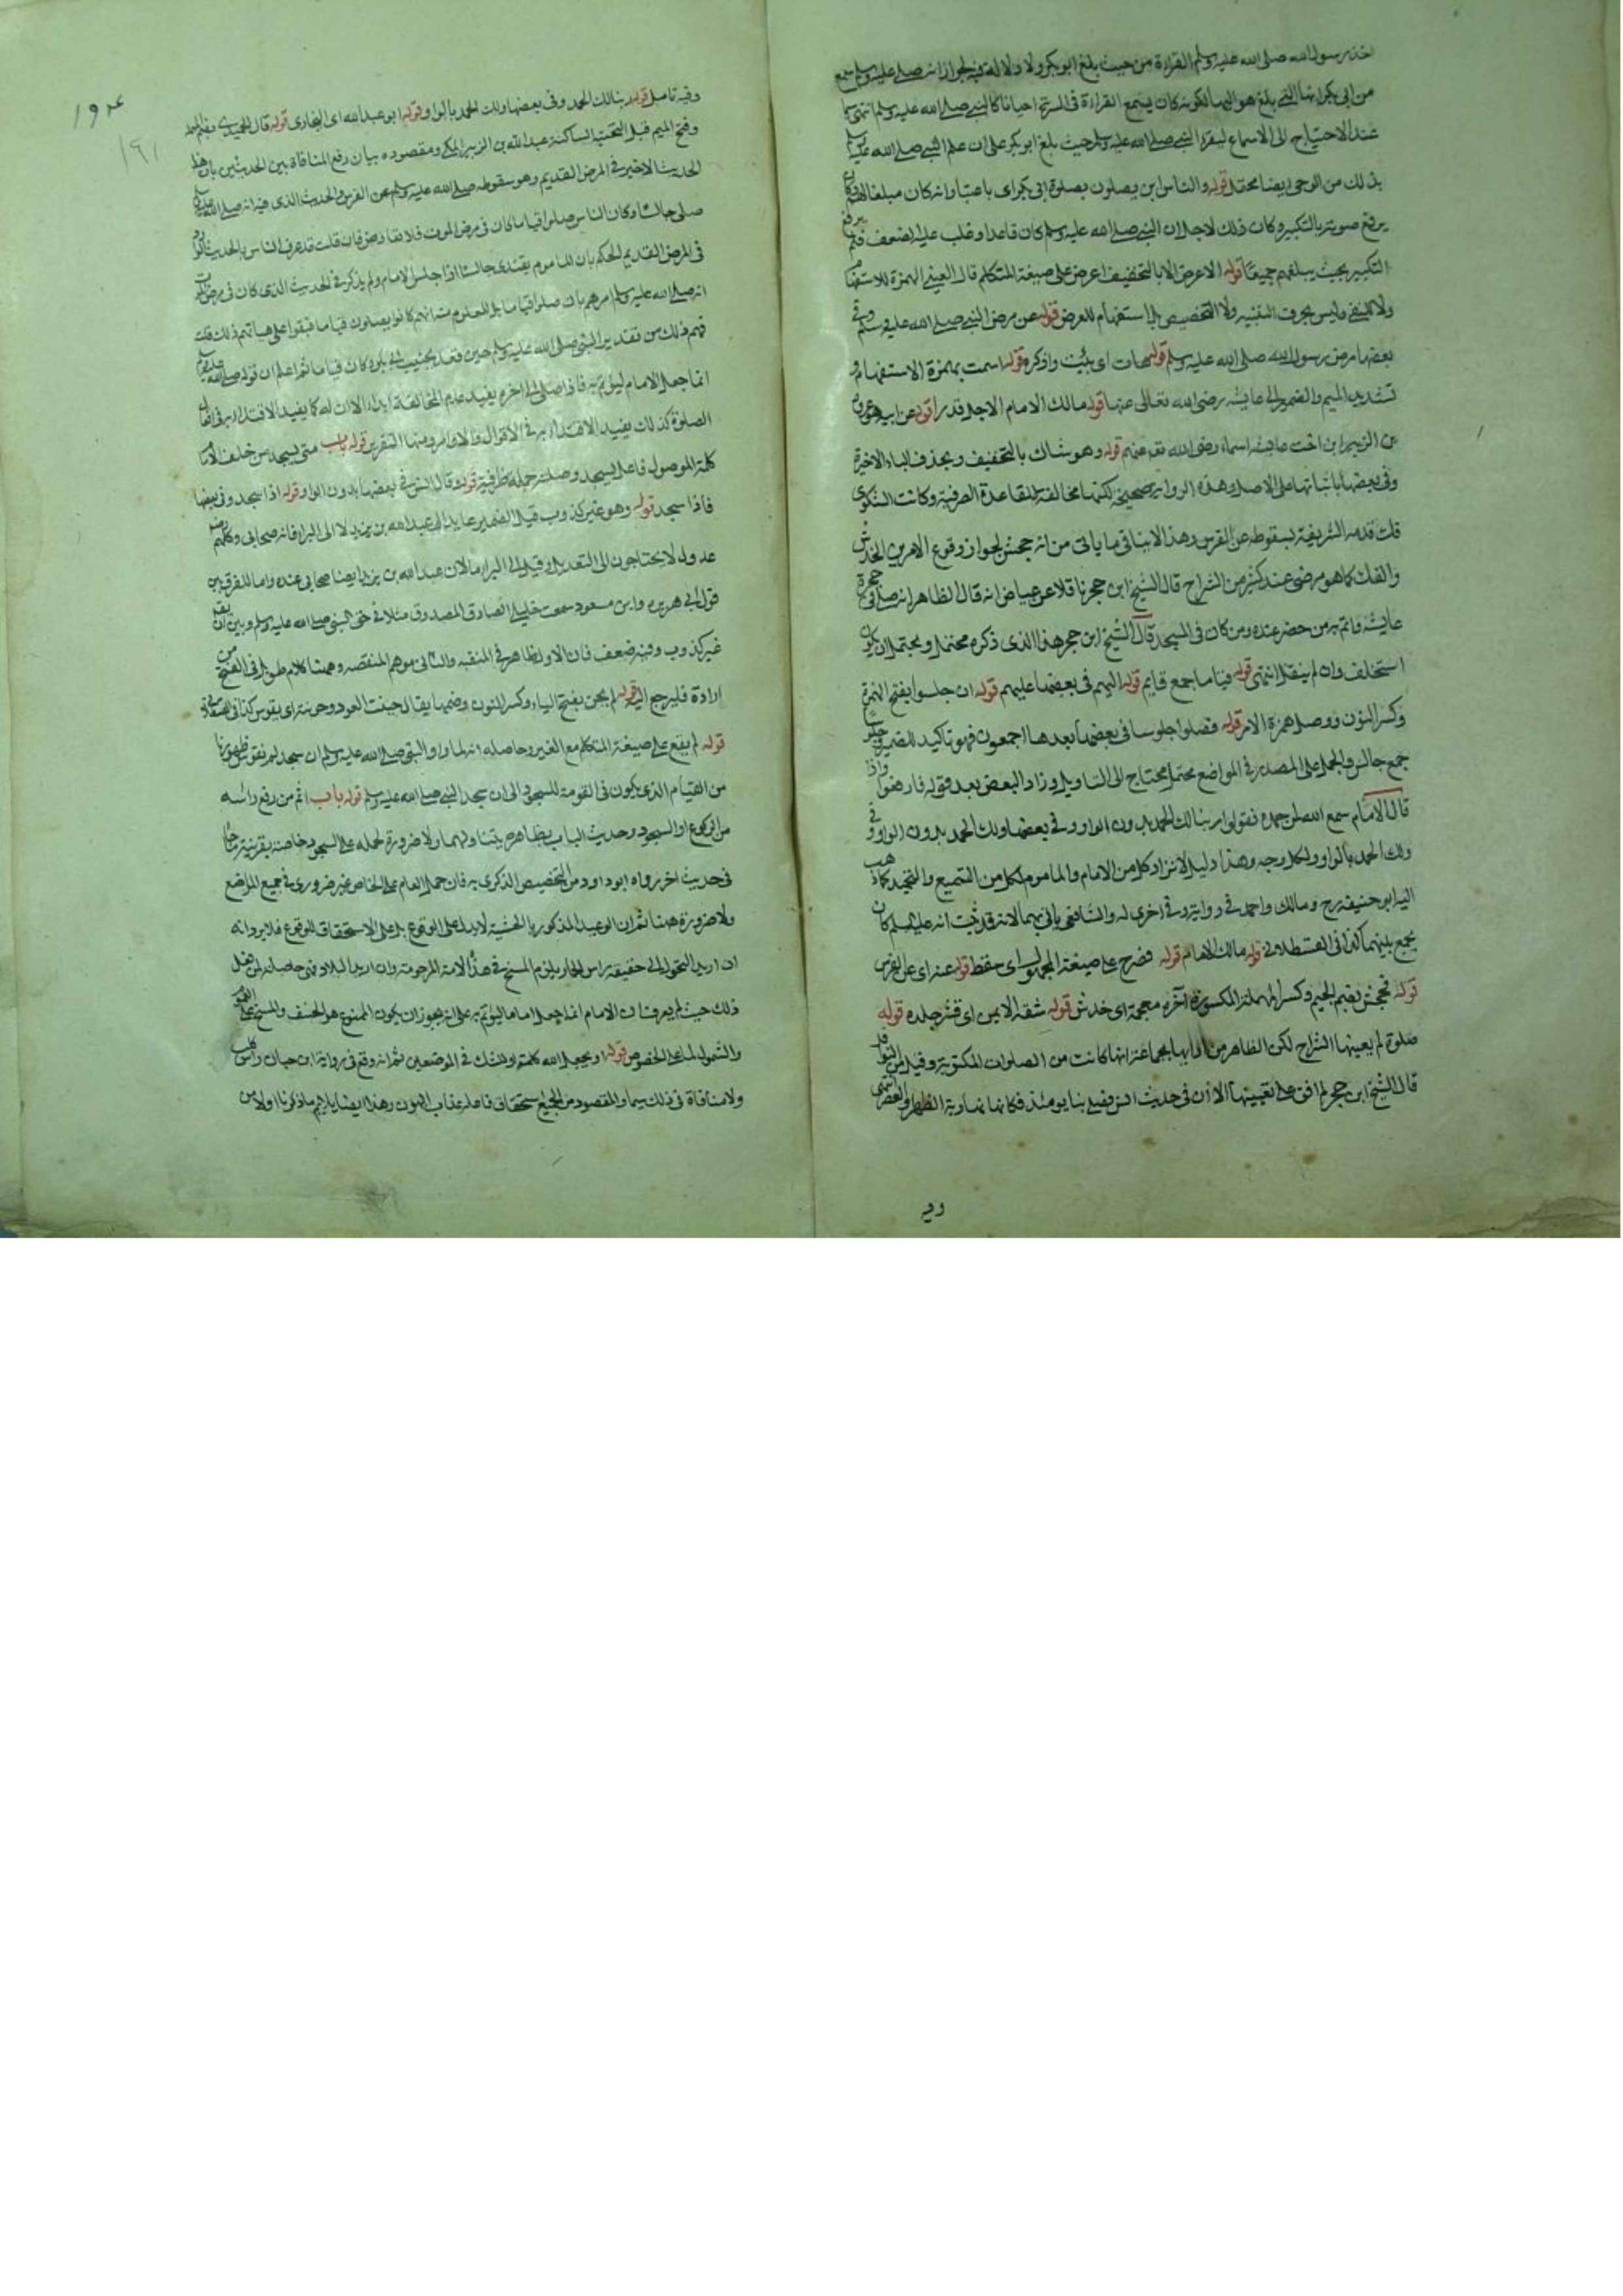 اخذ رسول الله صلى الله عليه وسلم القراءة من حيث بلغ ابو بكر ولا دلالة فيه لجواز انه صلى عليه وسلم سمع
من ابى بكر انها التى بلغ هو اليها لكونه كان يسمع القراءة فى السرية احيانا كما النبى صلى الله عليه وسلم انتهى
عند الاحتياج الى الاسماع ليقرا النبى صلى الله عليه وسلم حيث بلغ ابو بكر على ان علم النبى صلى الله عليه وسلم
بذلك من الوحى ايضا محتمل قوله والناس يصلون بصلوة ابى بكر اى باعتبار انه كان مبلغا لهم وكان
يرفع صوته بالتكبير وكان ذلك لاجل ان النبى صلى الله عليه وسلم كان قاعدا وغلب عليه الضعف فلم يرفع
التكبير بحيث يبلغهم جميعا قوله الا اعرض الا بالتخفيف اعرض على صيغة المتكلم قال العينى الهمزة للاستفهام
ولا للنفى وليس بحرف التنبيه ولا التخصيص بل استفهام للعرض قوله عن مرض النبى صلى الله عليه وسلم وفى
بعضها مرض رسول الله صلى الله عليه وسلم قوله هات اى بيّن واذكره قوله اسمت بهمزة الاستفهام و
تشديد الميم والضمير الى عايشه رضى الله تعالى عنها قوله مالك الامام الاجل قوله عن ابيه هو عروة
بن الزبير ابن اخت عايشه اسماء رضى الله عنهم قوله وهو شاك بالتخفيف وبحذف الياء الاخيرة
وفى بعضها باثباتها على الاصل وهذه الرواية صحيحة لكنها مخالفة للقاعدة الصرفية وكانت الشكوى
فك قدمه الشريفة بسقوطه عن الفرس وهذا لا ينافى ما ياتى من انه جحش لجواز وقوع الامرين الخدش
والفك كما هو مرضى عند كثير من الشراح قال الشيخ ابن حجر ناقلا عن عياض انه قال الظاهر انه صلى فى حجرة
عايشه وائتم به من حضر عنده ومن كان فى المسجد قال الشيخ ابن حجر هذا الذى ذكره محتمل ويحتمل ان يكون
استخلف وان لم ينقل انتهى قوله قياما جمع قايم قوله اليهم فى بعضها عليهم قوله ان جلسوا بفتح الهمزة
وكسر النون ووصل همزة الامر قوله فصلوا جلوسا فى بعضها بعدها اجمعون فهو تاكيد للضمير
جمع جالس والحمل على المصدر فى المواضع محتمل محتاج الى التاويل وزاد البعض بعد قوله فارفعوا واذا
قال الامام سمع الله لمن حمده فقولوا ربنا لك الحمد بدون الواو وفى بعضها ولك الحمد بدون الواو وفى
ولك الحمد بالواو ولكل وجه وهذا دليل لانفراد كل من الامام والماموم لكل من التسميع والتحميد كما ذهب
اليه ابو حنيفه رح ومالك واحمد فى رواية وفى اخرى له والشافعى ياتى بهما لانه قد ثبت انه عليه السلام كان
يجمع بينهما كذا فى القسطلانى قوله مالك الامام قوله فصرع على صيغة المجهول اى سقط قوله عنه اى عن الفرس
قوله فجحش بضم الجيم وكسر المهملة المكسورة آخره معجمة اى خدش قوله شقه الايمن اى قشر جلده قوله
صلوة لم يعينها الشراح لكن الظاهر من ادايها بجماعة انها كانت من الصلوات المكتوبة وقيل من النوافل
قال الشيخ ابن حجر لم اقف على تعيينها الا ان فى حديث انس فصلى بنا يومئذ فكانها نهارية الظهر او العصر انتهى
وفيه
١٩٤
١٩١
وفيه تامل قوله ربنا لك الحمد وفى بعضها ولك الحمد بالواو قوله ابو عبد الله اى البخارى قوله قال الحميدى بضم المهملة
وفتح الميم قبل التحتية الساكنة عبد الله بن الزبير المكى ومقصوده بيان رفع المنافاة بين الحديثين بان هذا
الحديث الاخير فى المرض القديم وهو سقوطه صلى الله عليه وسلم عن الفرس والحديث الذى فيه انه صلى الله عليه وسلم
صلى جالسا وكان الناس صلوا قياما كان فى مرض الموت فلا تعارض فان قلت قد عرف الناس بالحديث
فى المرض القديم الحكم بان الماموم يقتدى جالسا اذا جلس الامام ولم يذكر فى الحديث الذى كان فى مرض الموت
انه صلى الله عليه وسلم امرهم بان صلوا قياما بل المعلوم منه انهم كانوا يصلون قياما فبقوا على هياتهم ذلك قلت
فهم ذلك من تقدير النبى صلى الله عليه وسلم حين قعد بجنب ابى بكر وكان قياما ثم اعلم ان قوله صلى الله عليه وسلم
انما جعل الامام ليؤتم به فاذا صلى الى اخره يفيد عدم المخالفة كما يفيد الاقتداء به فى افعال
الصلوة كذلك يفيد الاقتداء به فى الاقوال والاوامر ومنها التقرير قوله باب متى يسجد من خلف الامام
كلمة الموصول فاعل يسجد وصلته جملة ظرفية قوله وقال انس فى بعضها بدون الواو قوله اذا سجد وفى بعضها
فاذا سجد قوله وهو غير كذوب قيل الضمير عايد الى عبد الله بن يزيد لا الى البراء فانه صحابى وكلهم
عدول لا يحتاجون الى التعديل وقيل الى البراء لان عبد الله بن يزيد ايضا صحابى عنده واما الفرق بين
قول ابى هريرة وابن مسعود سمعت خليلى الصادق المصدوق مثلا فى حق النبى صلى الله عليه وسلم وبين
غير كذوب وفيه ضعف فان الاول ظاهر فى المنقبه والثانى موهم المنقصه وههنا كلام طويل فى الفتح من
ارادة فليرجع اليه قوله لم يحن بفتح الياء وكسر النون وضمها يقال حنيت العود وحنوته اى يقوس كذا فى
قوله لم يقع على صيغة المتكلم مع الغير وحاصله انه لما راوا النبى صلى الله عليه وسلم ان سجد
من القيام الذى يكون فى القومة للسجود الى ان سجد النبى صلى الله عليه وسلم قوله باب اثم من رفع راسه
من الركوع او السجود وحديث الباب بظاهره يتناولهما ولا ضرورة لحمله على السجود خاصة بقرينة
فى حديث اخر رواه ابو داود من التخصيص الذكرى به فان حمل العام على الخاص غير ضرورى فى جميع المواضع
ولا ضرورة ههنا ثم ان الوعيد المذكور لا يدل على الوقوع بل على الاستحقاق للوقوع فلا يرد انه
ان اريد التحول الى حقيقة راس الحمار يلزم المسخ فى هذه الامة المرحومة وان اريد البلادة
ذلك حيث لم يعرف ان الامام انما جعل اماما ليؤتم به على انه يجوز ان يكون الممنوع هو الخسف والمسخ على
والشمول لا على الخصوص قوله او يجعل الله كلمة او للشك فى الموضعين ثم انه وقع فى رواية ابن حبان راس كلب
ولا منافاة فى ذلك سيما والمقصود من الجميع استحقاق فاعله عذاب الهون وهذا ايضا يلايم ما ذكرنا اولا من